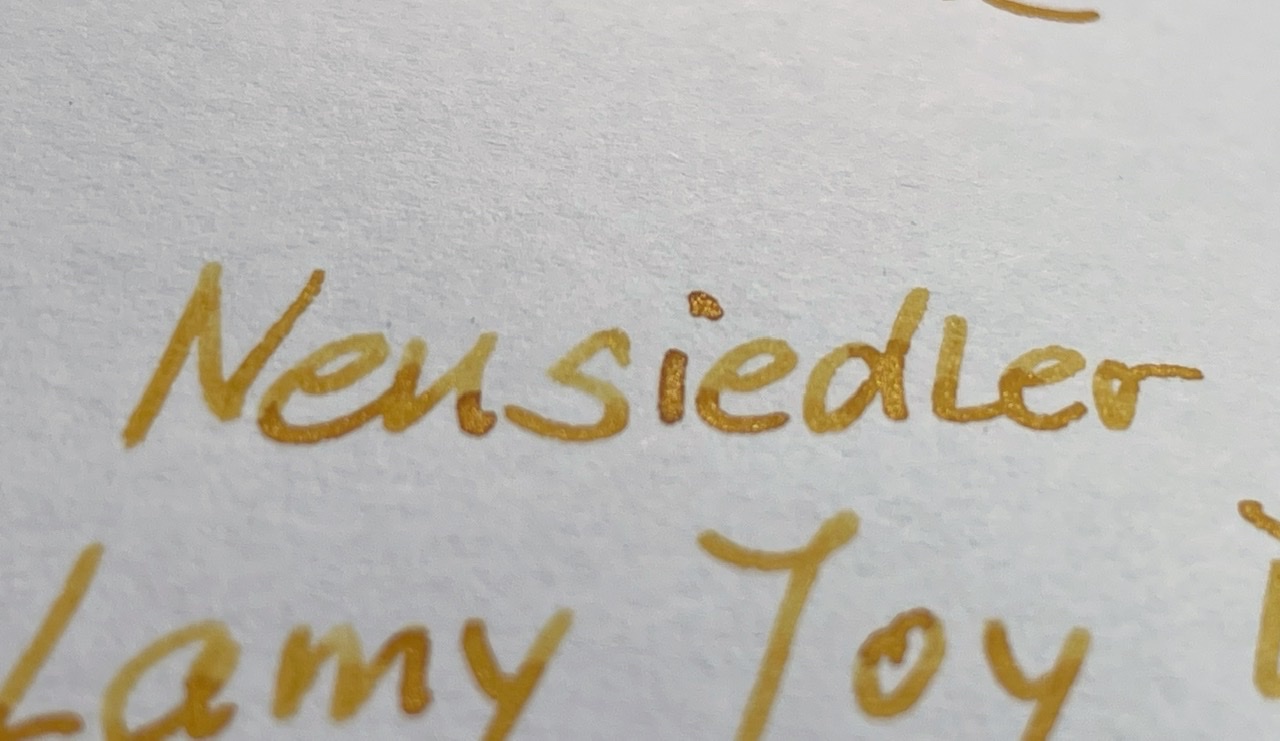 Neusiedler
Lamy Joy